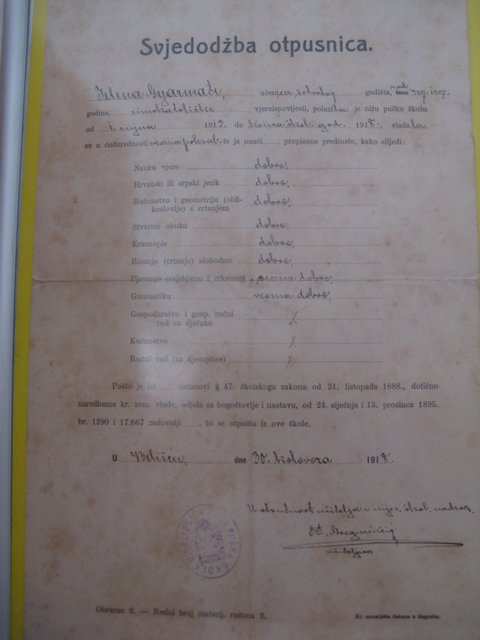 Svjedodžba otpusnica.
Jelena Gyarmati, učenica četvrtog godišta,
godina, rimokatoličke vjeroispovijesti, polazila je nižu pučku školu
od 1. rujna 1913. do konca škol. god. 1918., vladala
se u ćudorednosti veoma pohval. te je nauči propisane predmete, kako slijedi:
Nauku vjere dobro,
Hrvatski ili srpski jezik dobro,
Računstvo i geometriju (obli-
koslovlje) s crtanjem dobro,
Stvarnu obuku dobro,
Krasnopis dobro,
Risanje (crtanje) slobodno dobro,
Pjevanje (svjetovno i crkveno) veoma dobro,
Gimnastiku veoma dobro,
Gospodarstvo i gosp. ručni
rad za dječake /
Kućanstvo /
Ručni rad (za djevojčice) /
Pošto je ist ustanovi § 47. školskoga zakona od 31. listopada 1888., dotično
naredbama kr. zem. vlade, odjela za bogoštovlje i nastavu, od 24. siječnja i 13. prosinca 1895.
br. 1390 i 17.667 zadovolji , to se otpušta iz ove škole.
U Belišću, dne 30. kolovoza 1918.
U odsutnosti učitelja i mjes. škol. nadzor.
učiteljica
Obrazac 2. — Redni broj materij. računa 2.
Kr. zemaljska tiskara u Zagrebu.